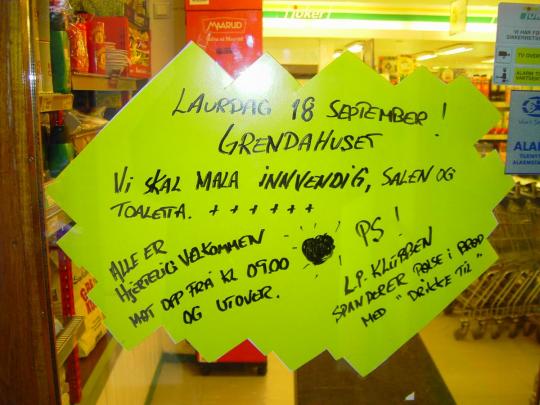 LAURDAG 18 SEPTEMBER!
GRENDAHUSET
VI SKAL MALA INNVENDIG, SALEN OG
TOALETTA. + + + + + +
ALLE ER
HJERTELIG VELKOMMEN
MØT OPP FRÅ KL 09.00
OG UTOVER.
PS!
L.P. KLUBBEN
SPANDERER PØLSE I BRØD
MED "DRIKKE TIL"
MAARUD
Joker
TV OVER
ALARM T
ALAR